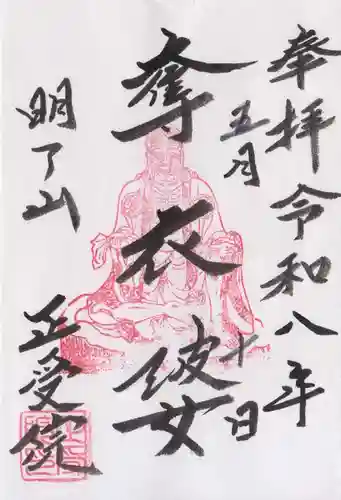 奉拝令和八年
五月十日
奪衣婆
明了山
正受院